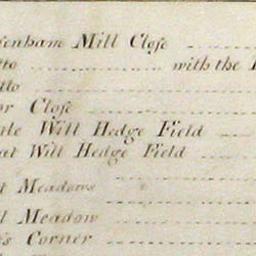 enham Mill Close
tto with the
tto
or Close
tle Will Hedge Field
at Will Hedge Field
t Meadows
l Meadow
's Corner